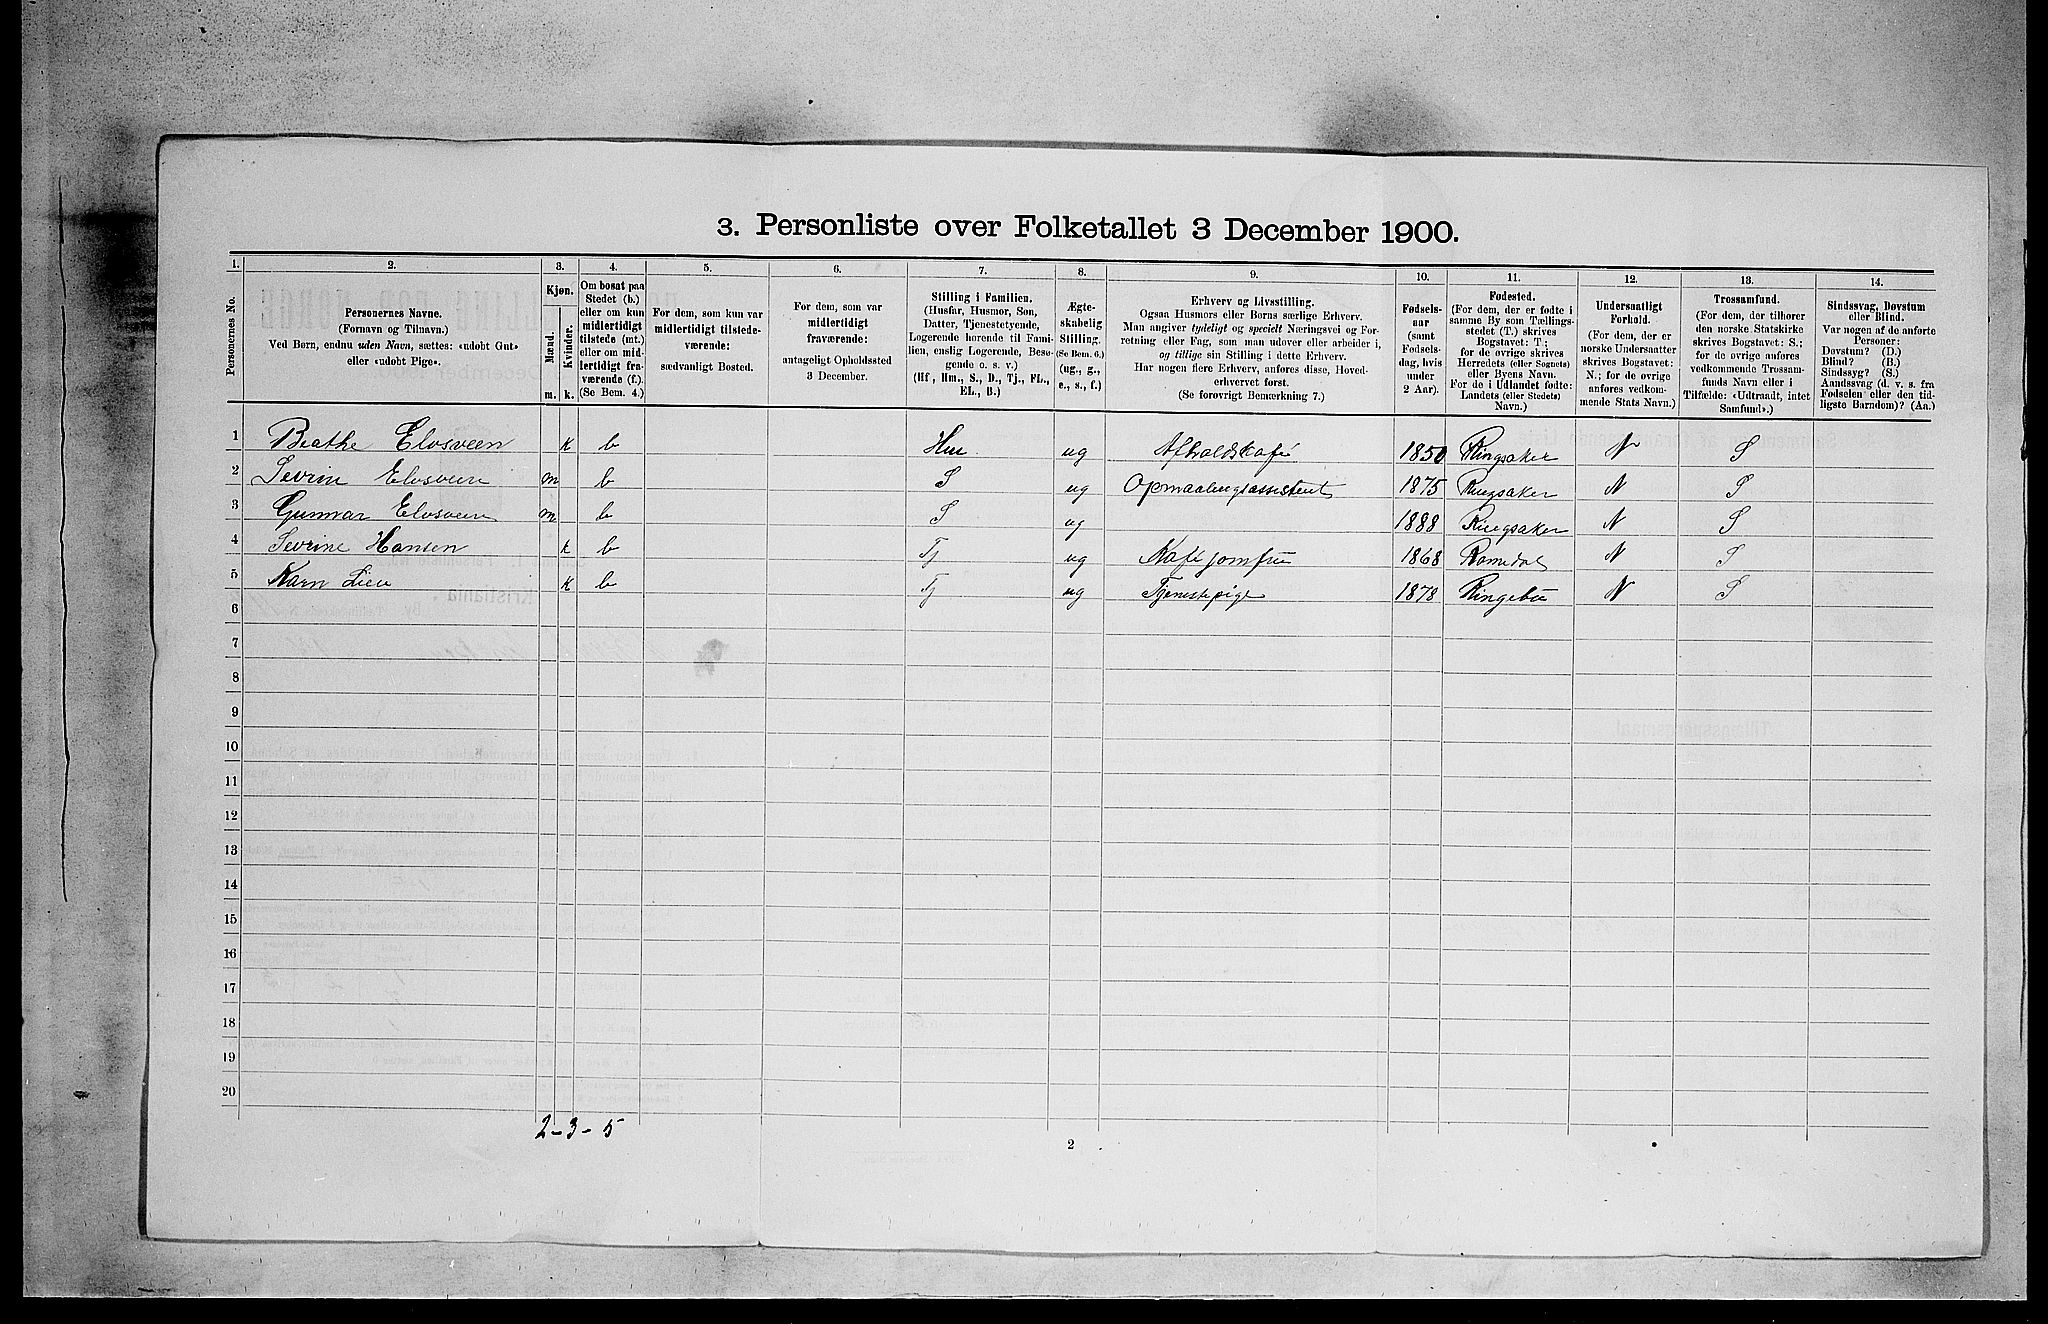 3. Personliste over Folketallet 3 December 1900.
1. 2. 3. 4. 5. 6. 7. 8. 9. 10. 11. 12. 13. 14.
Personernes No.
Personernes Navne.
(Fornavn og Tilnavn.)
Ved Børn, endnu uden Navn, sættes: «udøbt Gut»
eller «udøbt Pige».
Kjøn.
Mænd.
Kvinder.
m. k.
Om bosat paa
Stedet (b.)
eller om kun
midlertidigt
tilstede (mt.)
eller om mid-
lertidigt fra-
værende (f.).
(Se Bem. 4.)
For dem, som kun var
midlertidigt tilstede-
værende:
sædvanligt Bosted.
For dem, som var
midlertidigt
fraværende:
antageligt Opholdssted
3 December.
Stilling i Familien.
(Husfar, Husmor, Søn,
Datter, Tjenestetyende,
Logerende hørende til Fami-
lien, enslig Logerende, Besø-
gende o. s. v.)
(Hf, Hm., S., D., Tj., FL.,
EL., B.)
Ægte-
skabelig
Stilling.
(Se Bem. 6.)
(ug., g.,
e., s., f.)
Erhverv og Livsstilling.
Ogsaa Husmors eller Børns særlige Erhverv.
Man angiver tydeligt og specielt Næringsvei og For-
retning eller Fag, som man udover eller arbeider i,
og tillige sin Stilling i dette Erhverv.
Har nogen flere Erhverv, anføres disse, Hoved-
erhvervet først.
(Se forøvrigt Bemærkning 7.)
Fødsels-
aar
(samt
Fødsels-
dag, hvis
under
2 Aar).
Fødested.
(For dem, der er fødte i
samme By som Tællings-
stedet (T.) skrives
Bogstavet: T.;
for de øvrige skrives
Herredets (eller Sognets)
eller Byens Navn.
For de i Udlandet fødte:
Landets (eller Stedets)
Navn.)
Undersaatligt
Forhold.
(For dem, der er
norske Undersaatter
skrives Bogstavet:
N.; for de øvrige
anføres vedkom-
mende Stats Navn.)
Trossamfund.
(For dem, der tilhører
den norske Statskirke
skrives Bogstavet: S.;
for de øvrige anføres
vedkommende Trossam-
funds Navn eller i
Tilfælde: «Udtraadt, intet
Samfund».)
Sindssvag, Døvstum
eller Blind.
Var nogen af de anførte
Personer:
Døvstum? (D.)
Blind? (B.)
Sindssyg? (S.)
Aandssvag (d. v. s. fra
Fødselen eller den tid-
ligste Barndom)? (Aa.)
1 Beathe Elvsveen k b Hm ug Afholdskafé 1850 Ringsaker N S
2 Sevrin Elvsveen m b S ug Opmaalingsassistent 1875 Ringsaker N S
3 Gunnar Elvsveen m b S ug 1888 Ringsaker N S
4 Sevrine Hansen k b Tj ug Kafejomfru 1868 Romedal N S
5 Karn Lien k b Tj ug Tjenestepige 1878 Ringebu N S
6
7
8
9
10
11
12
13
14
15
16
17
18
19
20
2-3-5
2